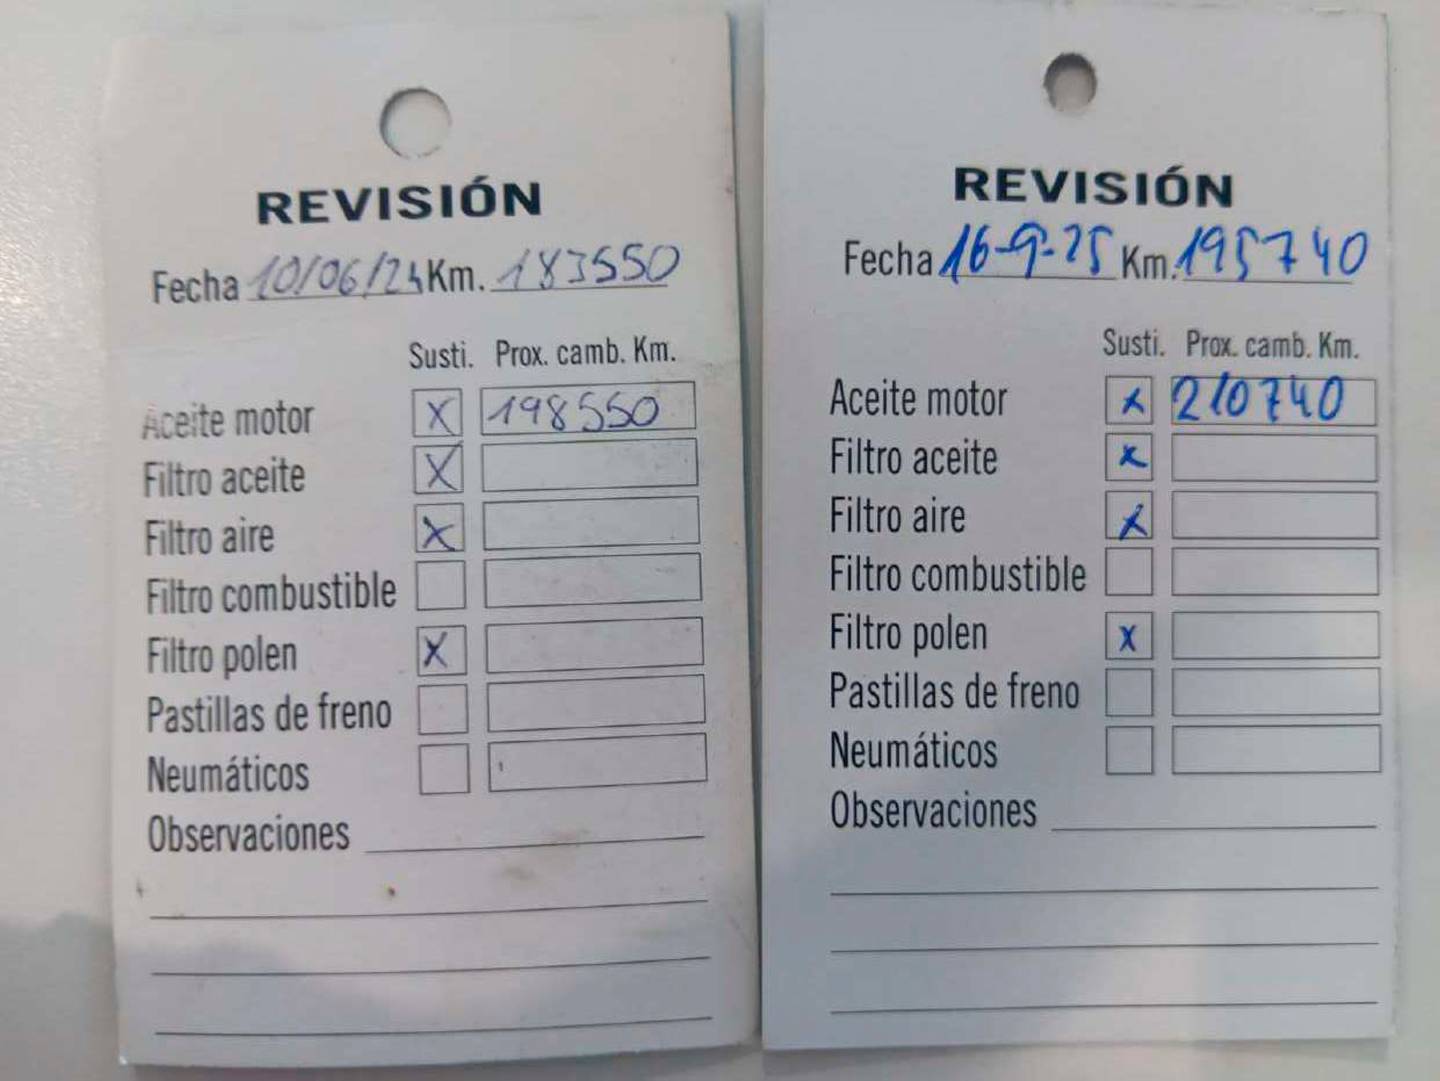 REVISIÓN
Fecha 10/06/24 Km. 183550
Susti. Prox. camb. Km.
Aceite motor X 198550
Filtro aceite X
Filtro aire X
Filtro combustible
Filtro polen X
Pastillas de freno
Neumáticos
Observaciones
REVISIÓN
Fecha 16-9-25 Km. 195740
Susti. Prox. camb. Km.
Aceite motor x 210740
Filtro aceite x
Filtro aire x
Filtro combustible
Filtro polen x
Pastillas de freno
Neumáticos
Observaciones